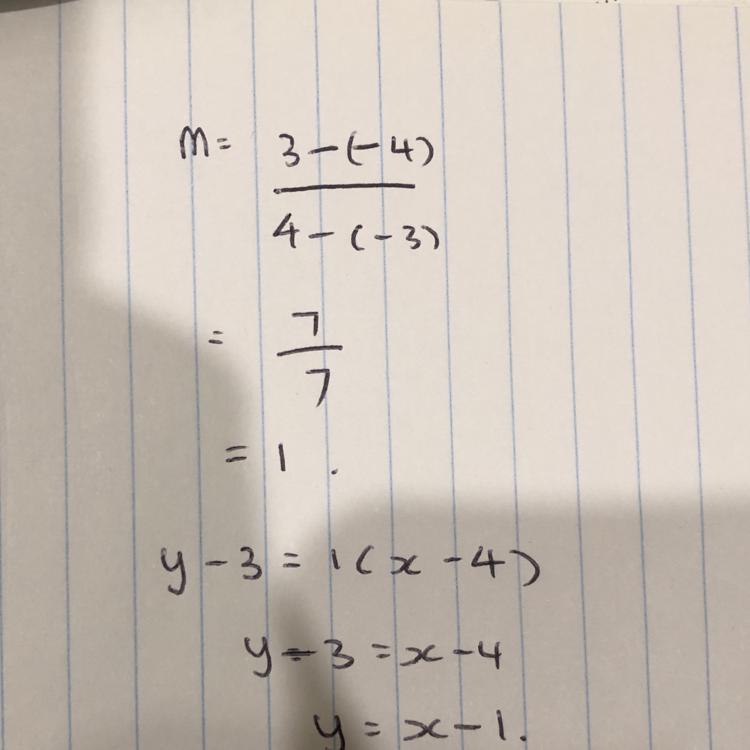 m= 3-(-4)
4-(-3)
= 7
7
= 1 .
y-3 = 1(x-4)
y-3 = x-4
y = x-1.